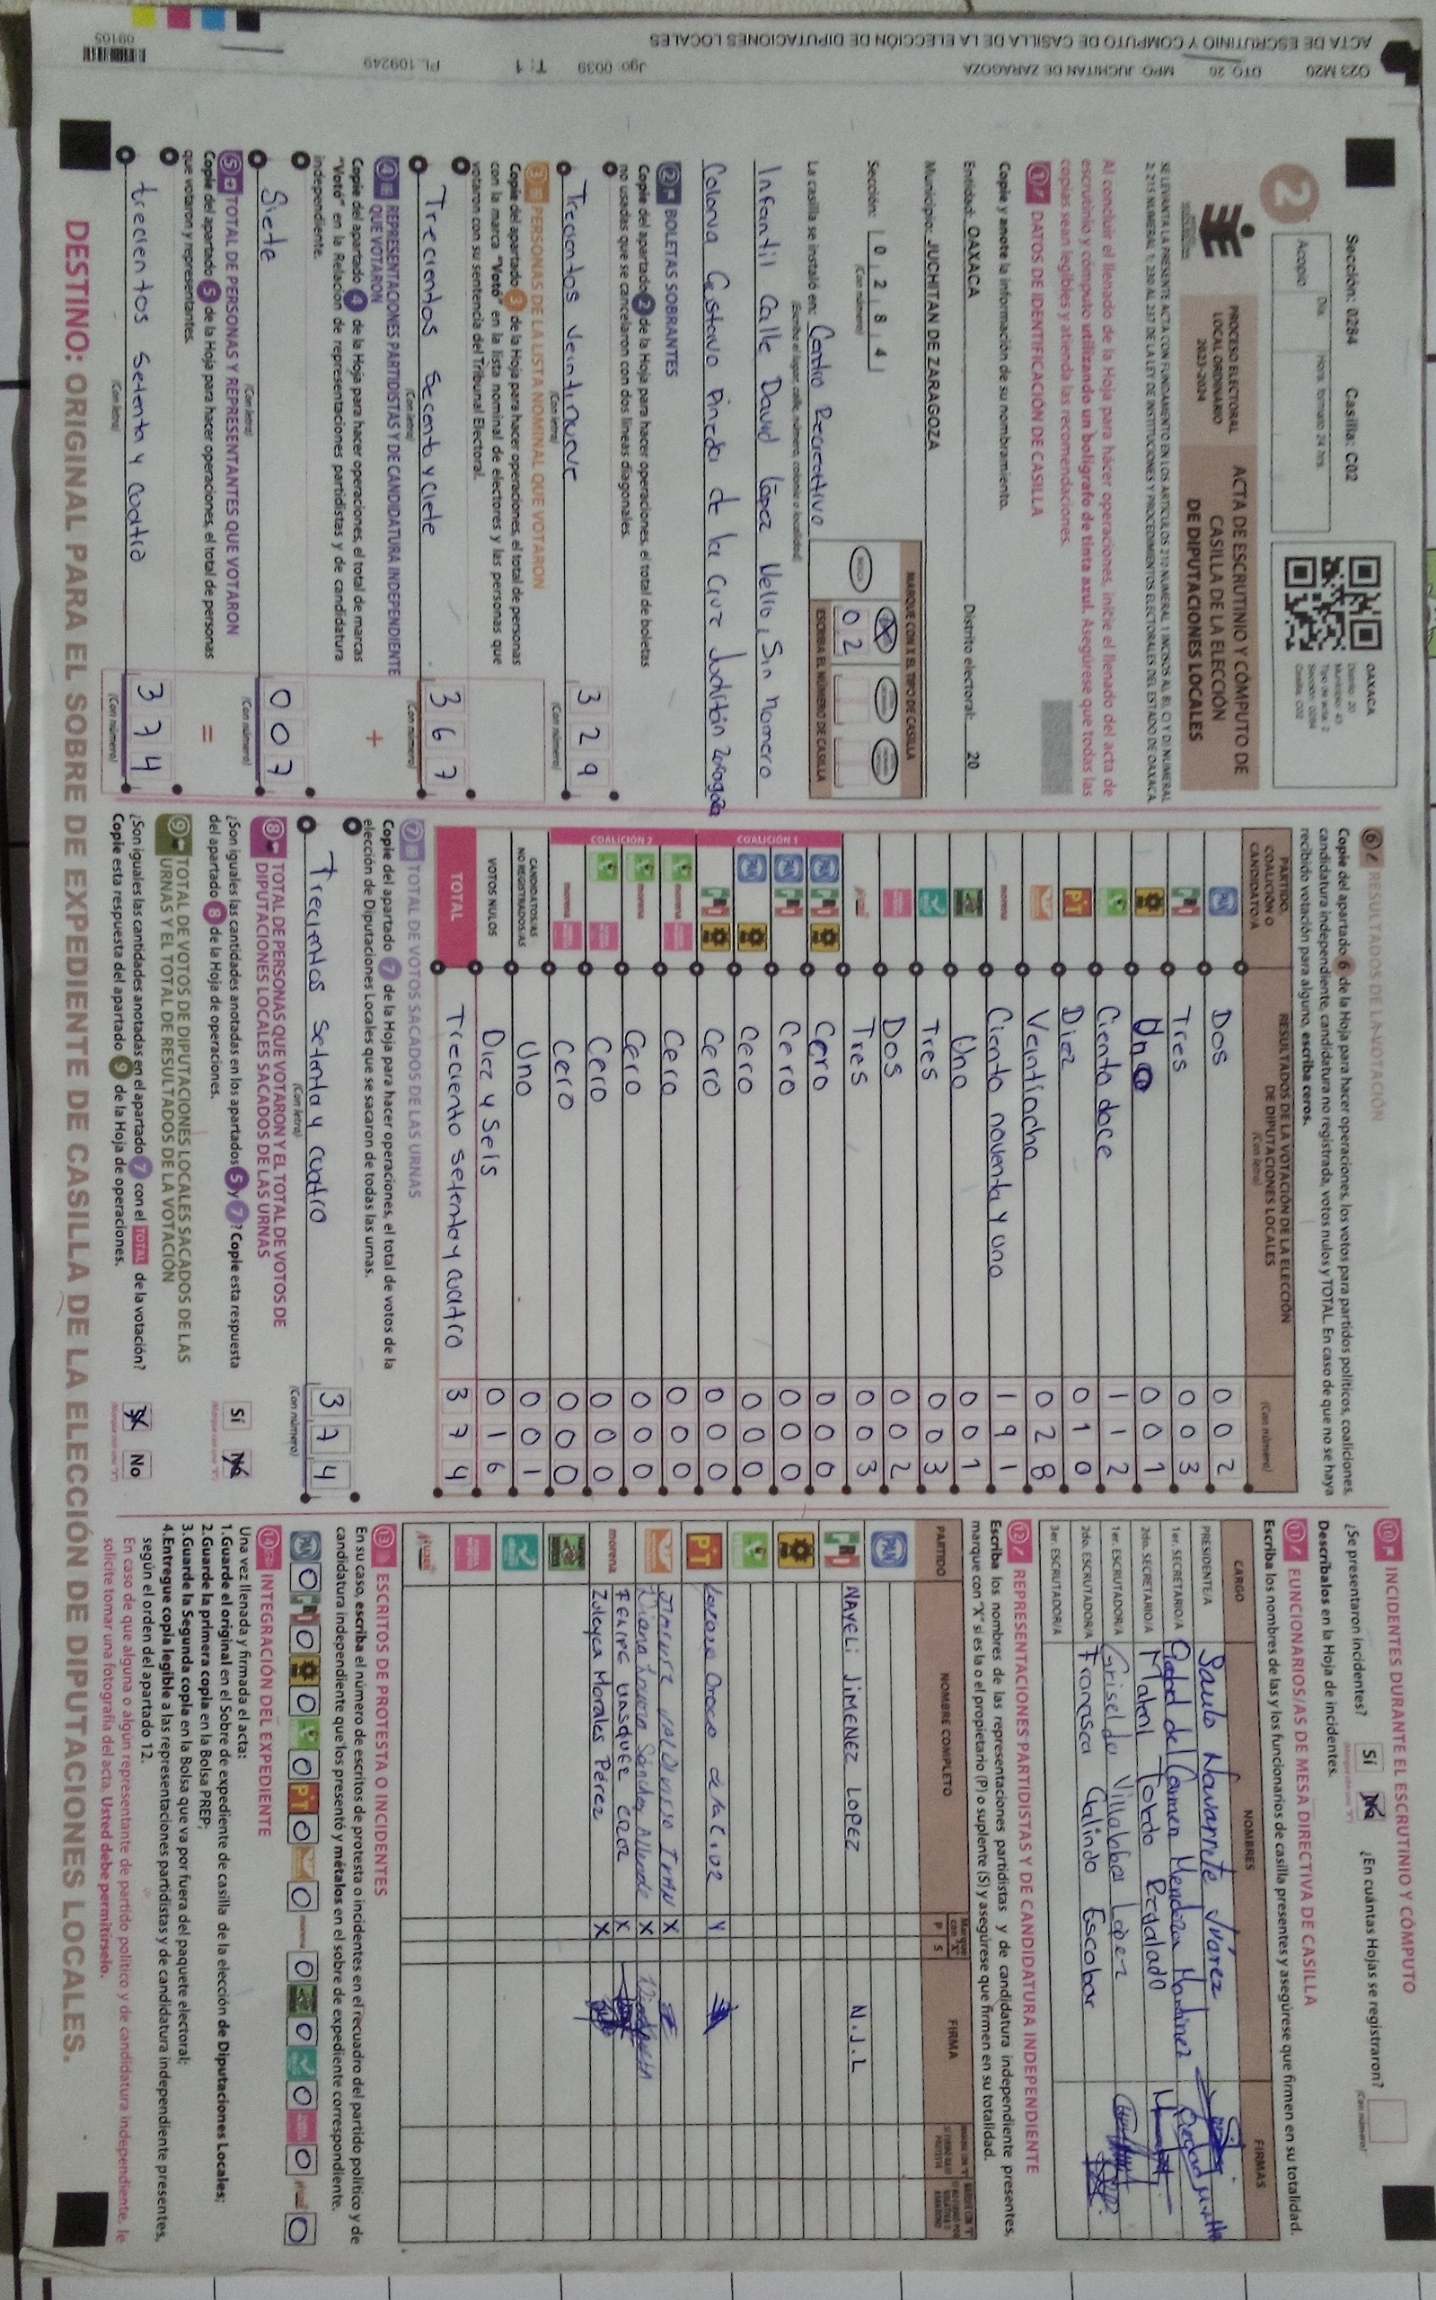 ACTA DE ESCRUTINIO Y CÓMPUTO DE CASILLA DE LA ELECCIÓN DE DIPUTACIONES LOCALES
O23 M20 DTO: 20 MPO: JUCHITAN DE ZARAGOZA Jgo: 0039 T: 1 PL: 109249
09105
Sección: 0284 Casilla: C02
2
Acopio
Día
Hora, formato 24 hrs.
OAXACA
Distrito: 20
Municipio: 43
Tipo de acta: 2
Sección: 0284
Casilla: C02
PROCESO ELECTORAL
LOCAL ORDINARIO
2023-2024
ACTA DE ESCRUTINIO Y CÓMPUTO DE
CASILLA DE LA ELECCIÓN
DE DIPUTACIONES LOCALES
SE LEVANTA LA PRESENTE ACTA CON FUNDAMENTO EN LOS ARTÍCULOS 210 NUMERAL 1 INCISOS A), B), C) Y D) NUMERAL
2; 215 NUMERAL 1; 230 AL 237 DE LA LEY DE INSTITUCIONES Y PROCEDIMIENTOS ELECTORALES DEL ESTADO DE OAXACA.
Al concluir el llenado de la Hoja para hacer operaciones, inicie el llenado del acta de
escrutinio y cómputo utilizando un bolígrafo de tinta azul. Asegúrese que todas las
copias sean legibles y atienda las recomendaciones.
1 DATOS DE IDENTIFICACIÓN DE CASILLA
Copie y anote la información de su nombramiento.
Entidad: OAXACA Distrito electoral: 20
Municipio: JUCHITAN DE ZARAGOZA
Sección: 0 2 8 4
(Con número)
MARQUE CON X EL TIPO DE CASILLA
BÁSICA
0 2
ESCRIBA EL NÚMERO DE CASILLA
La casilla se instaló en: Centro Recreativo
(Escriba el lugar, calle, número, colonia o localidad)
Infantil Calle David López Nelio, Sin Nomero
Colonia Gustavo Pineda de la Cruz Juchitán Zaragoza
2 BOLETAS SOBRANTES
Copie del apartado 2 de la Hoja para hacer operaciones, el total de boletas
no usadas que se cancelaron con dos líneas diagonales.
Trecientos veintinueve 3 2 9
(Con letra) (Con número)
3 PERSONAS DE LA LISTA NOMINAL QUE VOTARON
Copie del apartado 3 de la Hoja para hacer operaciones, el total de personas
con la marca "Votó" en la lista nominal de electores y las personas que
votaron con su sentencia del Tribunal Electoral.
Trecientos Secenta y Ciete 3 6 7
(Con letra) (Con número)
4 REPRESENTACIONES PARTIDISTAS Y DE CANDIDATURA INDEPENDIENTE
QUE VOTARON
Copie del apartado 4 de la Hoja para hacer operaciones, el total de marcas
"Votó" en la Relación de representaciones partidistas y de candidatura
independiente.
+
Siete 0 0 7
(Con letra) (Con número)
5 TOTAL DE PERSONAS Y REPRESENTANTES QUE VOTARON
Copie del apartado 5 de la Hoja para hacer operaciones, el total de personas
que votaron y representantes.
=
trecientos Setenta y Cuatro 3 7 4
(Con letra) (Con número)
6 RESULTADOS DE LA VOTACIÓN
Copie del apartado 6 de la Hoja para hacer operaciones, los votos para partidos políticos, coaliciones,
candidatura independiente, candidatura no registrada, votos nulos y TOTAL. En caso de que no se haya
recibido votación para alguno, escriba ceros.
PARTIDO, COALICIÓN O CANDIDATO/A
RESULTADOS DE LA VOTACIÓN DE LA ELECCIÓN
DE DIPUTACIONES LOCALES
(Con letra) (Con número)
PAN Dos 0 0 2
PRI Tres 0 0 3
PRD Uno 0 0 1
Ciento doce 1 1 2
PT Diez 0 1 0
Veintiocho 0 2 8
morena Ciento noventa y uno 1 9 1
Uno 0 0 1
Tres 0 0 3
Dos 0 0 2
Tres 0 0 3
COALICIÓN 1
Cero 0 0 0
Cero 0 0 0
Cero 0 0 0
Cero 0 0 0
COALICIÓN 2
Cero 0 0 0
Cero 0 0 0
Cero 0 0 0
Cero 0 0 0
CANDIDATOS/AS NO REGISTRADOS/AS Uno 0 0 1
VOTOS NULOS Diez y Seis 0 1 6
TOTAL Treciento setenta y cuatro 3 7 4
7 TOTAL DE VOTOS SACADOS DE LAS URNAS
Copie del apartado 7 de la Hoja para hacer operaciones, el total de votos de la
elección de Diputaciones Locales que se sacaron de todas las urnas.
Trecientos setenta y cuatro 3 7 4
(Con letra) (Con número)
8 TOTAL DE PERSONAS QUE VOTARON Y EL TOTAL DE VOTOS DE
DIPUTACIONES LOCALES SACADOS DE LAS URNAS
¿Son iguales las cantidades anotadas en los apartados 5 y 7? Copie esta respuesta
del apartado 8 de la Hoja de operaciones.
Sí No
9 TOTAL DE VOTOS DE DIPUTACIONES LOCALES SACADOS DE LAS
URNAS Y EL TOTAL DE RESULTADOS DE LA VOTACIÓN
¿Son iguales las cantidades anotadas en el apartado 7 con el TOTAL de la votación?
Copie esta respuesta del apartado 9 de la Hoja de operaciones.
Sí No
10 INCIDENTES DURANTE EL ESCRUTINIO Y CÓMPUTO
¿Se presentaron incidentes? Sí No ¿En cuántas Hojas se registraron?
(Con número)
Descríbalos en la Hoja de incidentes.
11 FUNCIONARIOS/AS DE MESA DIRECTIVA DE CASILLA
Escriba los nombres de las y los funcionarios de casilla presentes y asegúrese que firmen en su totalidad.
CARGO NOMBRES FIRMAS
PRESIDENTE/A Saulo Navarrete Jvárez
1er. SECRETARIO/A Citabel del Carmen Mendoza Martinez
2do. SECRETARIO/A
1er. ESCRUTADOR/A Griselda Villalobos López
2do. ESCRUTADOR/A Francisca Galindo Escobar
3er. ESCRUTADOR/A
12 REPRESENTACIONES PARTIDISTAS Y DE CANDIDATURA INDEPENDIENTE
Escriba los nombres de las representaciones partidistas y de candidatura independiente presentes,
marque con "X" si es la o el propietario (P) o suplente (S) y asegúrese que firmen en su totalidad.
PARTIDO NOMBRE COMPLETO P S FIRMA
PRI NAYELI JIMENEZ LOPEZ N.J.L
PT Orozco de la Cruz X
Iran X
Diana Laura Sánchez Allende X
morena Felipe Vasquez Cruz X
Zuleyca Morales Pérez X
13 ESCRITOS DE PROTESTA O INCIDENTES
En su caso, escriba el número de escritos de protesta o incidentes en el recuadro del partido político y de
candidatura independiente que los presentó y métalos en el sobre de expediente correspondiente.
PAN 0 PRI 0 PRD 0 0 PT 0 0 morena 0 0 0 0 0
14 INTEGRACIÓN DEL EXPEDIENTE
Una vez llenada y firmada el acta:
1.Guarde el original en el Sobre de expediente de casilla de la elección de Diputaciones Locales;
2.Guarde la primera copia en la Bolsa PREP;
3.Guarde la Segunda copia en la Bolsa que va por fuera del paquete electoral;
4.Entregue copia legible a las representaciones partidistas y de candidatura independiente presentes,
según el orden del apartado 12.
En caso de que alguna o algún representante de partido político y de candidatura independiente, le
solicite tomar una fotografía del acta, Usted debe permitírselo.
DESTINO: ORIGINAL PARA EL SOBRE DE EXPEDIENTE DE CASILLA DE LA ELECCIÓN DE DIPUTACIONES LOCALES.